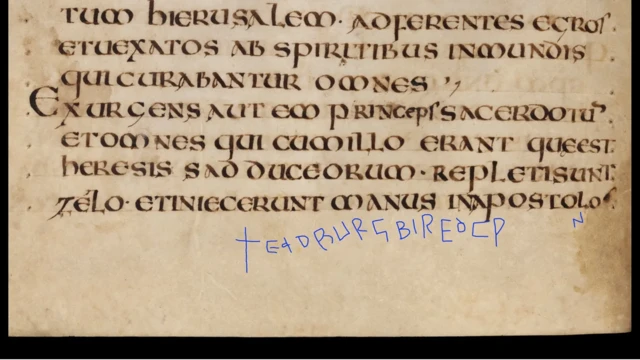 TUM hIERUSALEM· ADFERENTES EGROS·
ETUEXATOS AB SPIRITIBUS INMUNDIS
QUICURABANTUR OMNES
EXURGENS AUTEM PRINCEPS SACERDOTŪ
ETOMNES QUI CUMILLO ERANT QUEEST·
hERESIS SADDUCEORUM· REPLETISUNT
ZELO· ETINIECERUNT MANUS INAPOSTOLOS
+E+DBURGBIREDCP N